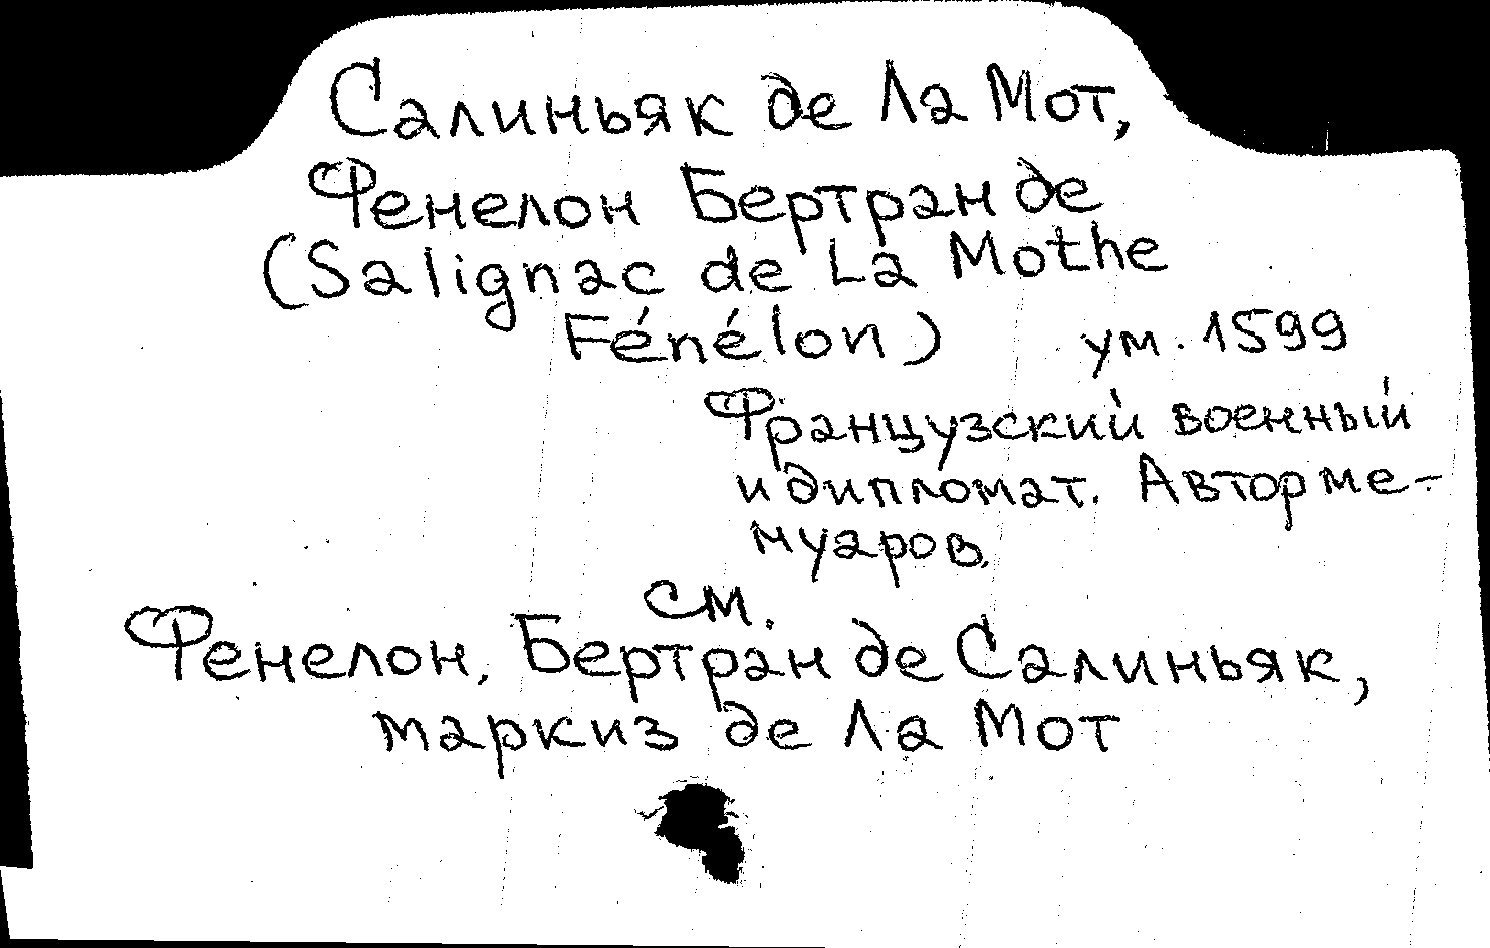 Салиньяк де Ла Мот,
Фенелон Бертран де
(Salignac de La Mothe
Fénélon) ум. 1599
Французский военный
и дипломат. Автор ме-
муаров.
см.
Фенелон, Бертран де Салиньяк,
маркиз де Ла Мот